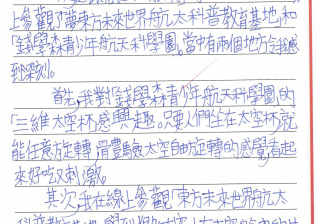 上參觀了夢東方未來世界航太科普教育基地,和
「錢學森青少年航天科學園。當中有兩個地方令我感
到深刻。
首先,我對「錢學森青少年航天科學園」的
「三維太空杯」感興趣。只要人們坐在太空杯就
能任意旋轉,體驗太空自動旋轉的感覺,看起
來好吃又刺激。
其次,我在線上參觀「東方未來世界航太